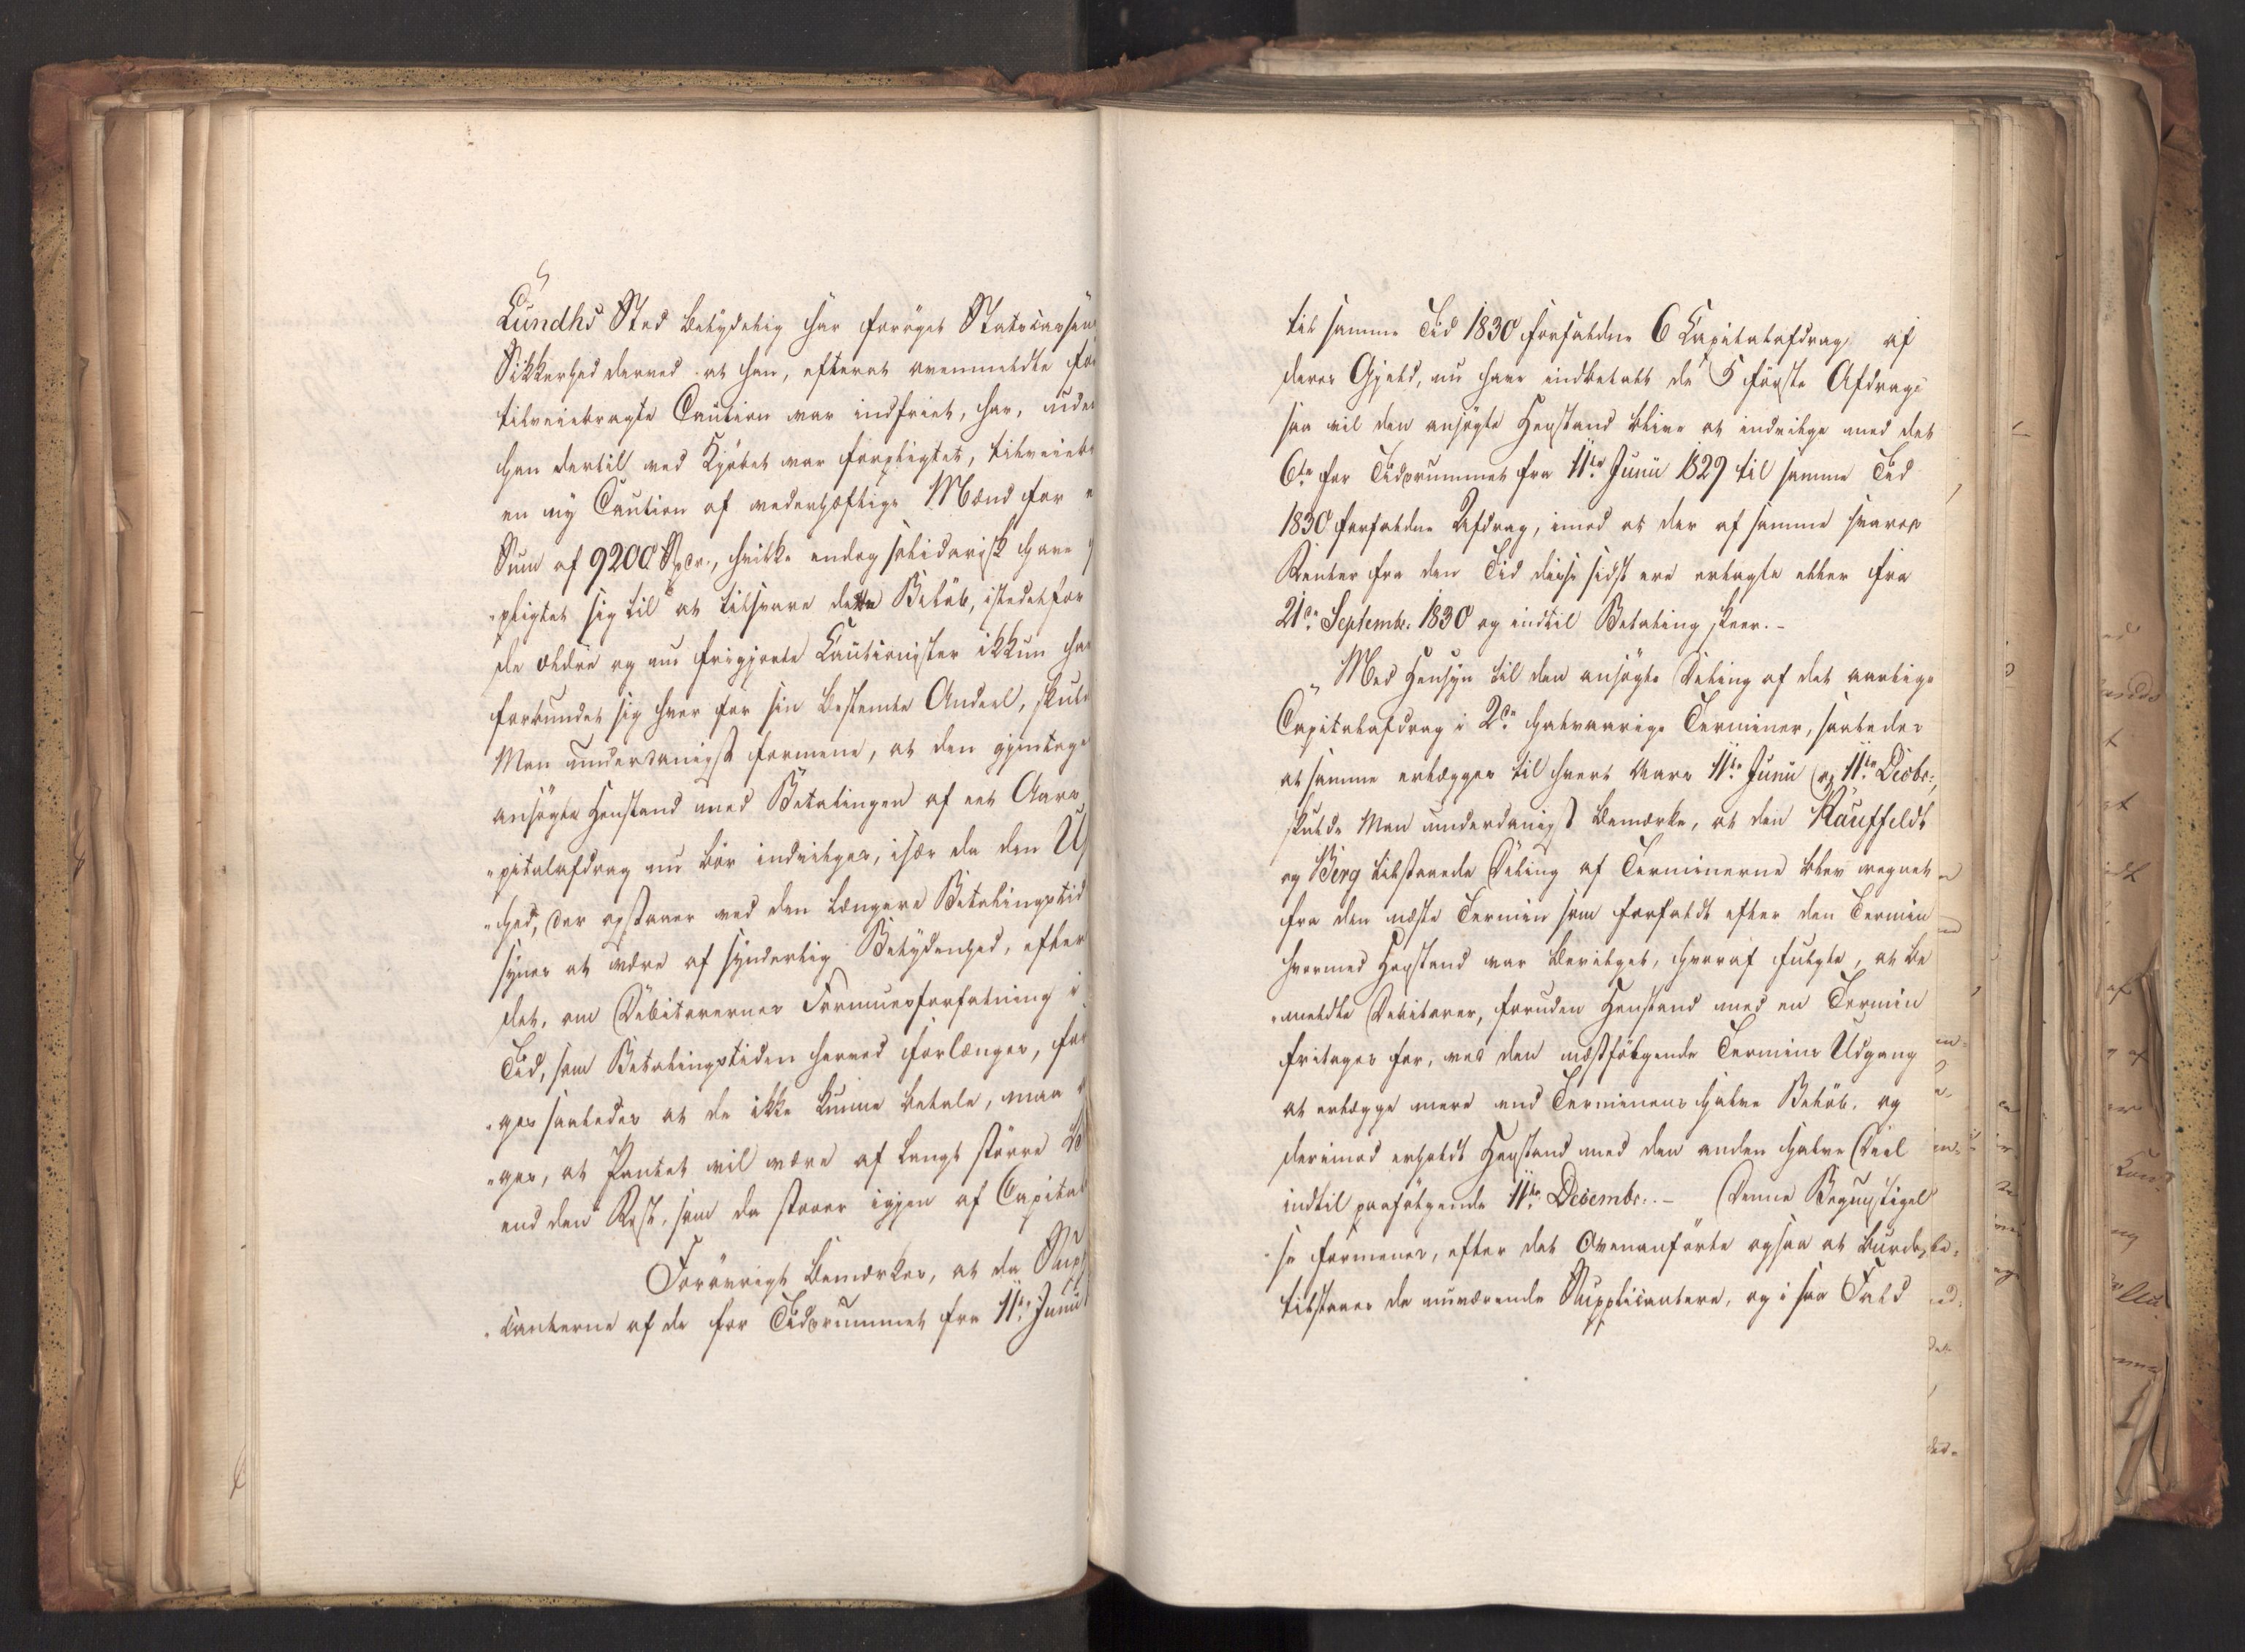 Lundhs Sted betydelig har forøget Statscassens
Sikkerhed derved at han, efterat ovenmeldte før
tilveiebragte Caution var indfriet, har, uden
han dertil ved Kjøbet var forpligtet, tilveiebr
en ny Caution af vederhæftige Mænd for e
Sum af 9200 Spdr., hvilke endog solidarisk have
"pligtet sig til at tilsvare dette Beløb, istedetfor
de ældre og nu frigjorte Cautionister ikkun har
forbundet sig hver for sin bestemte Andeel, skuld
Man underdanigst formene, at den gjentage
ansøgte Henstand med Betalingen af eet Aars
"pitalafdrag nu bør indvilges, især da den U
"hed, der opstaaer ved den længere Betalingstid
synes at være af synderlig Betydenhed, efter
det, om Debitorernes Formuesforfatning i
Tid, som Betalingstiden herved forlænges, for
"ges saaledes at de ikke kunne betale, maa
"ges, at Pantet vil være af langt større
end den Rest, som da staaer igjen af Capital
Forøvrigt bemærkes, at da Supp
"canterne af de for Tidsrummet fra 11te Junii
til samme Tid 1830 forfaldne 6 Capitalafdrag af
deres Gjæld, nu have indbetalt de 5 første Afdrag
saa vil den ansøgte Henstand blive at indvilge med det
6te for Tidsrummet fra 11te Junii 1829 til samme Tid
1830 forfaldne Afdrag, imod at der af samme svares
Renter fra den Tid disse sidst ere erlagte eller fra
21de Septembr. 1830 og indtil Betaling skeer.-
Med Hensyn til den ansøgte Deling af det aarlige
Capitalafdrag i 2de halvaarige Terminer, saaledes
at samme erlægges til hvert Aars 11te Junii og 11te Decbr.,
skulde Man underdanigst bemærke, at den Kauffeldt
og Berg tilstaaede Deling af Terminerne blev regnet
fra den næste Termin som forfaldt efter den Termin
hvormed Henstand var bevilget, hvoraf fulgte, at be
"meldte Debitorer, foruden Henstand med en Termin
fritages for, ved den næstfølgende Termins Udgang
at erlægge mere end Terminens halve Beløb, og
derimod erholdt Henstand med den anden halve Deel
indtil paafølgende 11te Decembr.- Denne Begunstigel
"se formenes, efter det Ovenanførte ogsaa at burde
tilstaaes de nuværende Supplicantere, og i saa Fald